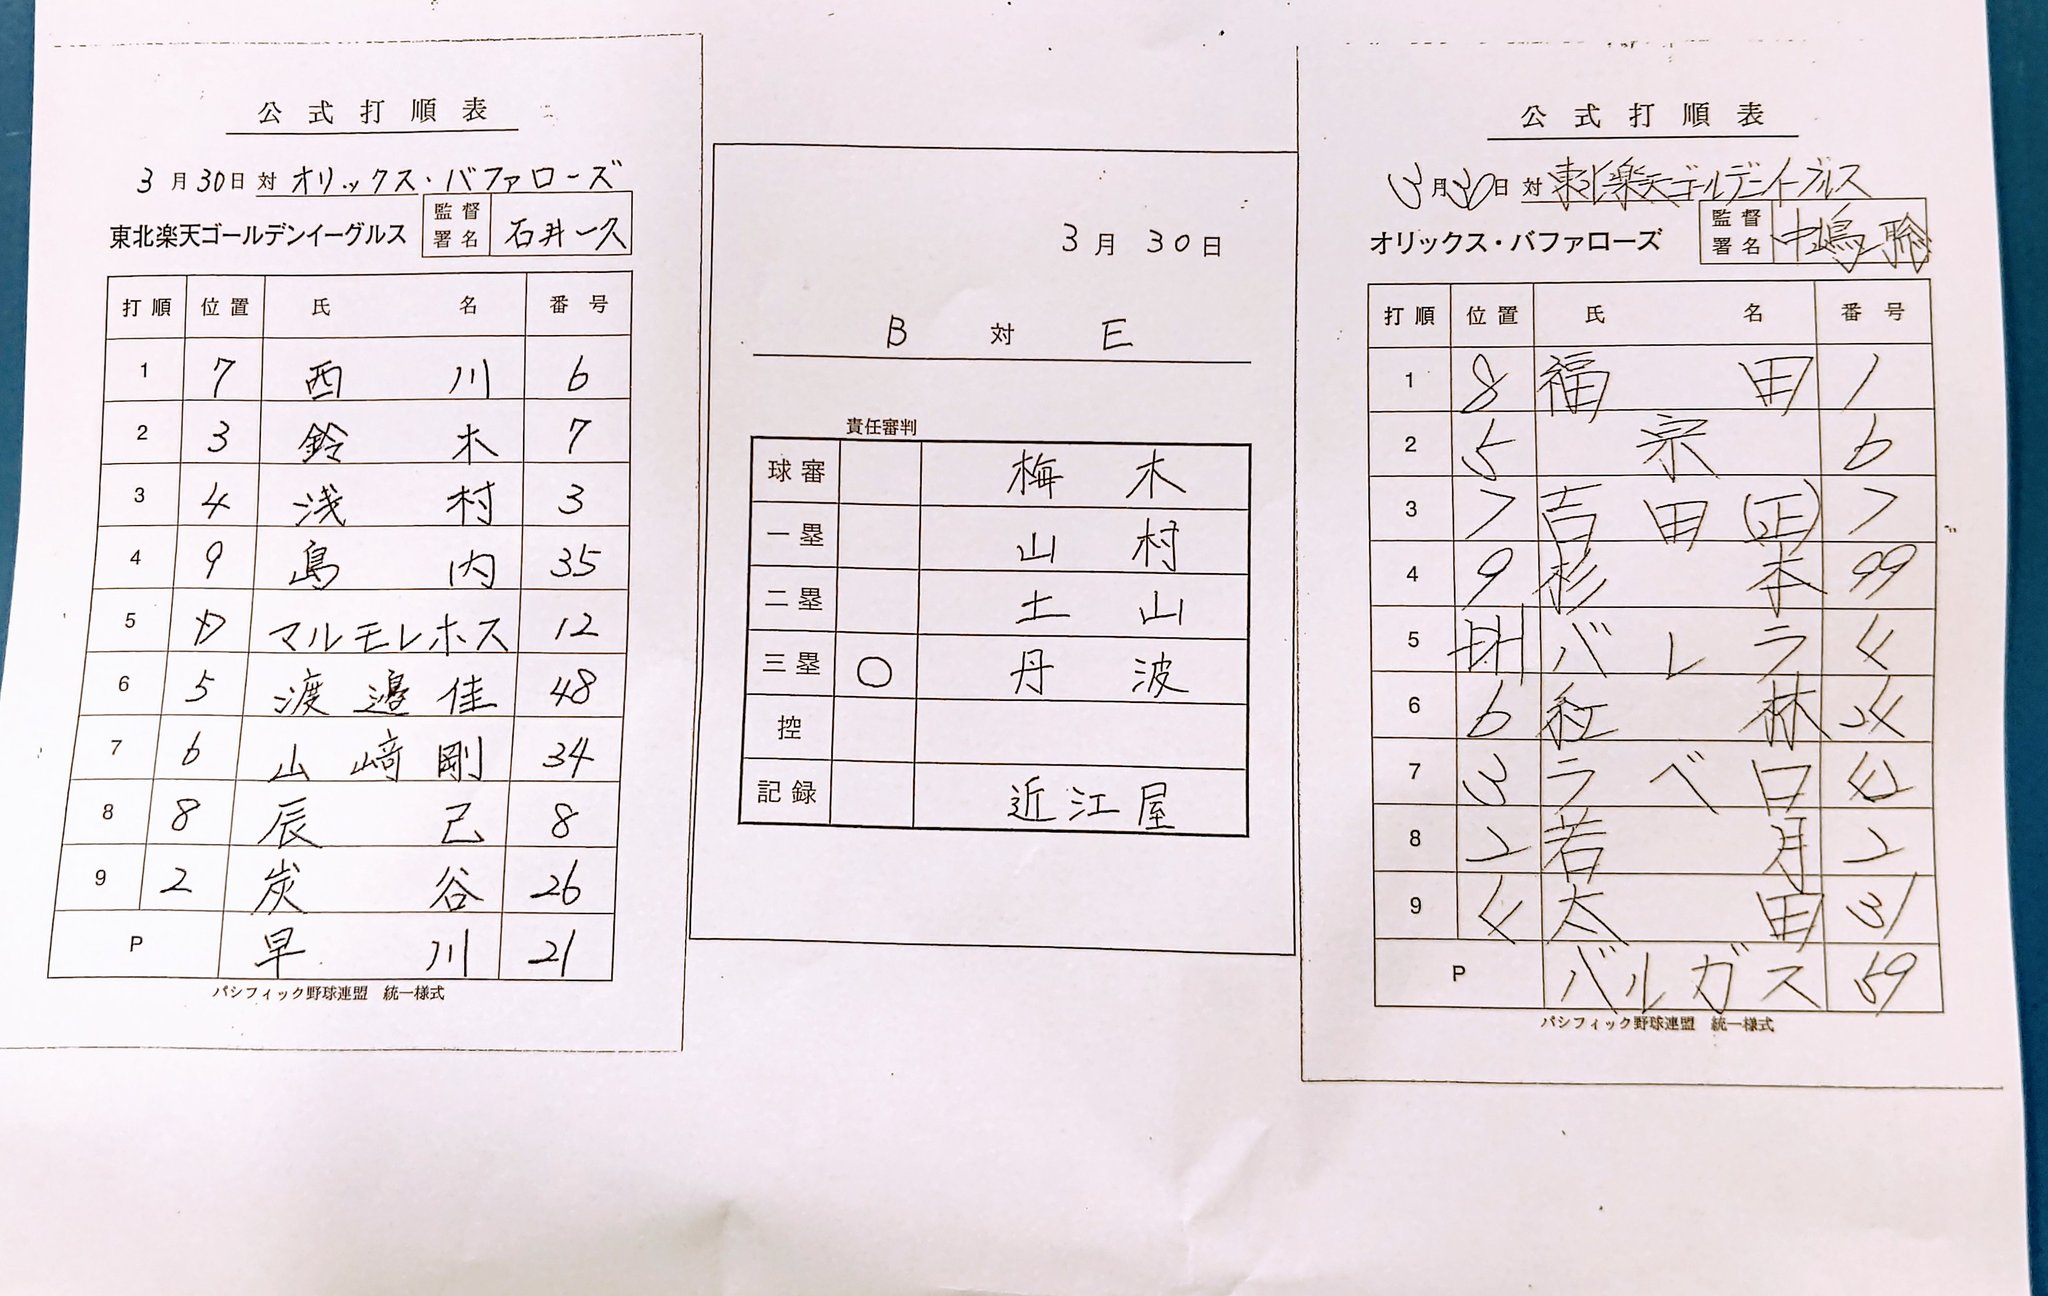 公式打順表
3月30日 対 オリックス・バファローズ
東北楽天ゴールデンイーグルス 監督署名 石井一久
打順 位置 氏名 番号
1 7 西川 6
2 3 鈴木 7
3 4 浅村 3
4 9 島内 35
5 マルモレホス 12
6 5 渡邉佳 48
7 6 山﨑剛 34
8 8 辰己 8
9 2 炭谷 26
P 早川 21
パシフィック野球連盟 統一様式
3月30日
B 対 E
責任審判
球審 梅木
一塁 山村
二塁 土山
三塁 ○ 丹波
控
記録 近江屋
公式打順表
3月30日 対 東北楽天ゴールデンイーグルス
オリックス・バファローズ 監督署名 中嶋聡
打順 位置 氏名 番号
1 8 福田 1
2 5 宗 6
3 7 吉田(正) 7
4 9 杉本 99
5 DH バレラ 4
6 6 紅林 24
7 3 ラベロ 42
8 2 若月 2
9 4 太田 31
P バルガス 59
パシフィック野球連盟 統一様式